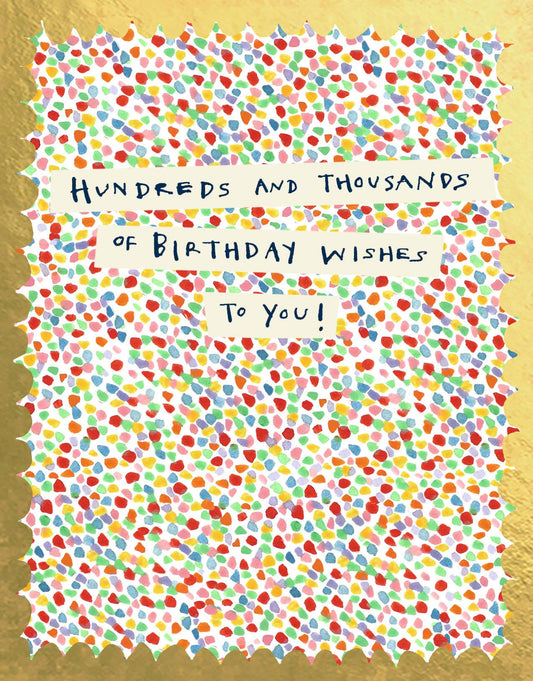 HUNDREDS AND THOUSANDS
OF BIRTHDAY WISHES
TO YOU!